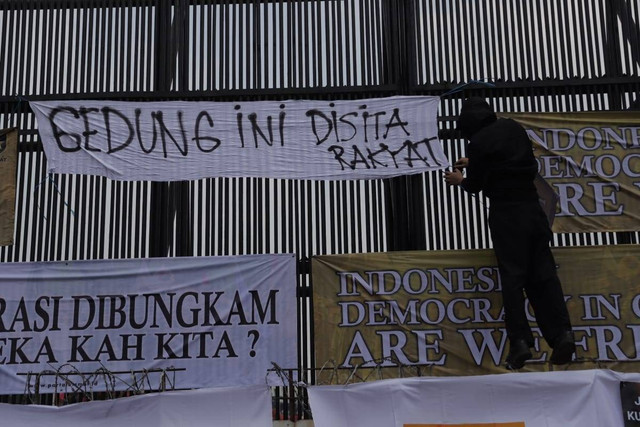 GEDUNG INI DISITA
RAKYAT
INDONE
DEMOCRA
ARE
RASI DIBUNGKAM
EKA KAH KITA ?
INDONES
DEMOCRACY IN C
ARE WE FRE
J
KU